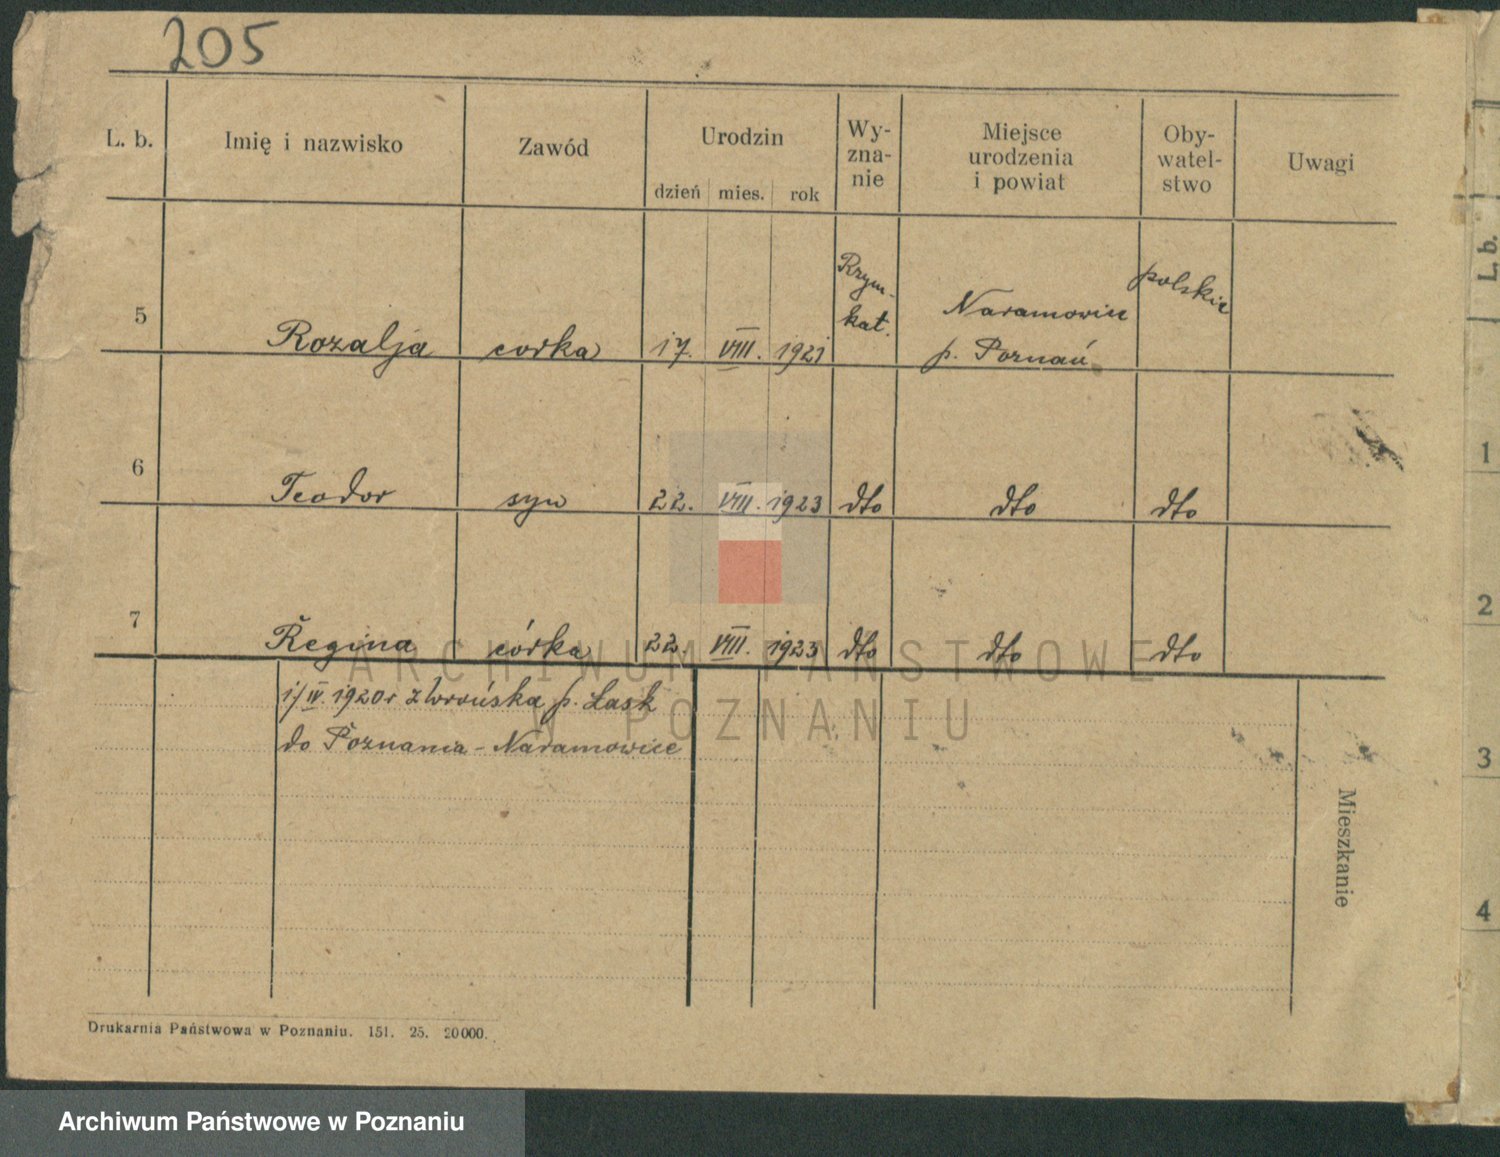 205
L. b. Imię i nazwisko Zawód Urodzin Wy-zna-nie Miejsce urodzenia i powiat Oby-watel-stwo Uwagi
dzień mies. rok
5 Rozalja corka 17. VIII. 1921 Rzym-kat. Naramowice p. Poznań polskie
6 Teodor syn 22. VIII. 1923 dto dto dto
7 Regina córka 22. VIII. 1923 dto dto dto
1/IV. 1920r z Wrońska p. Łask
do Poznania - Naramowice
Mieszkanie
Drukarnia Państwowa w Poznaniu. 151. 25. 20000.
L. b.
1
2
3
4
ARCHIWUM PAŃSTWOWE
W POZNANIU
Archiwum Państwowe w Poznaniu